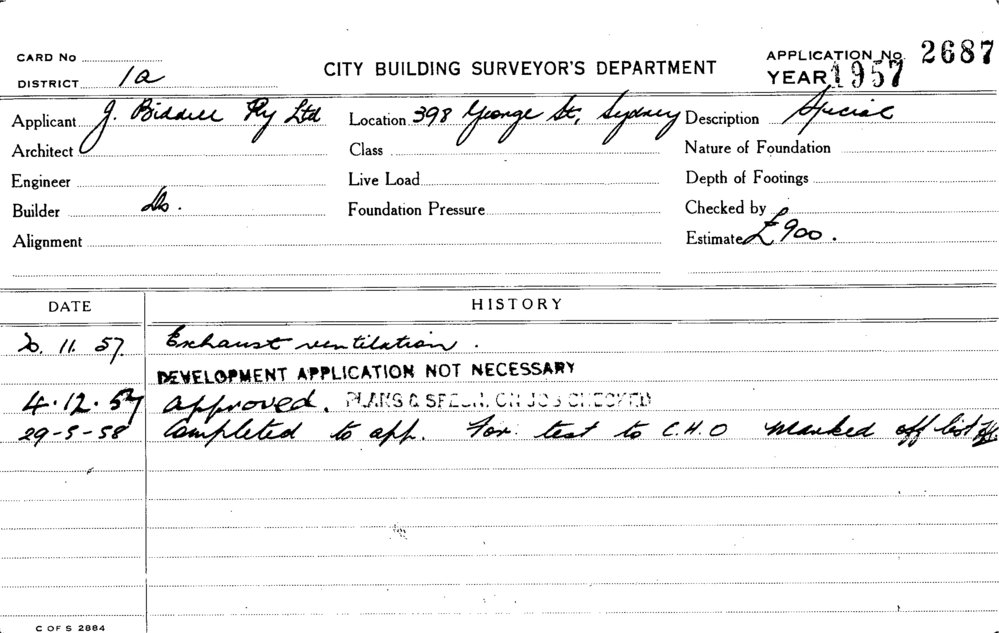 CARD No
CITY BUILDING SURVEYOR'S DEPARTMENT
APPLICATION No. 2687
DISTRICT 1a
YEAR 1957
Applicant J. Pty Ltd
Location 398 George St, Sydney
Description Special
Architect
Class
Nature of Foundation
Engineer
Live Load
Depth of Footings
Builder Do.
Foundation Pressure
Checked by
Alignment
Estimate £900.
DATE
HISTORY
20. 11. 57. Exhaust ventilation.
DEVELOPMENT APPLICATION NOT NECESSARY
4.12.57 approved. PLANS & SPECN. ON JOB CHECKED
29-5-58 Completed to app. For. test to C.H.O Marked off list
C OF S 2884